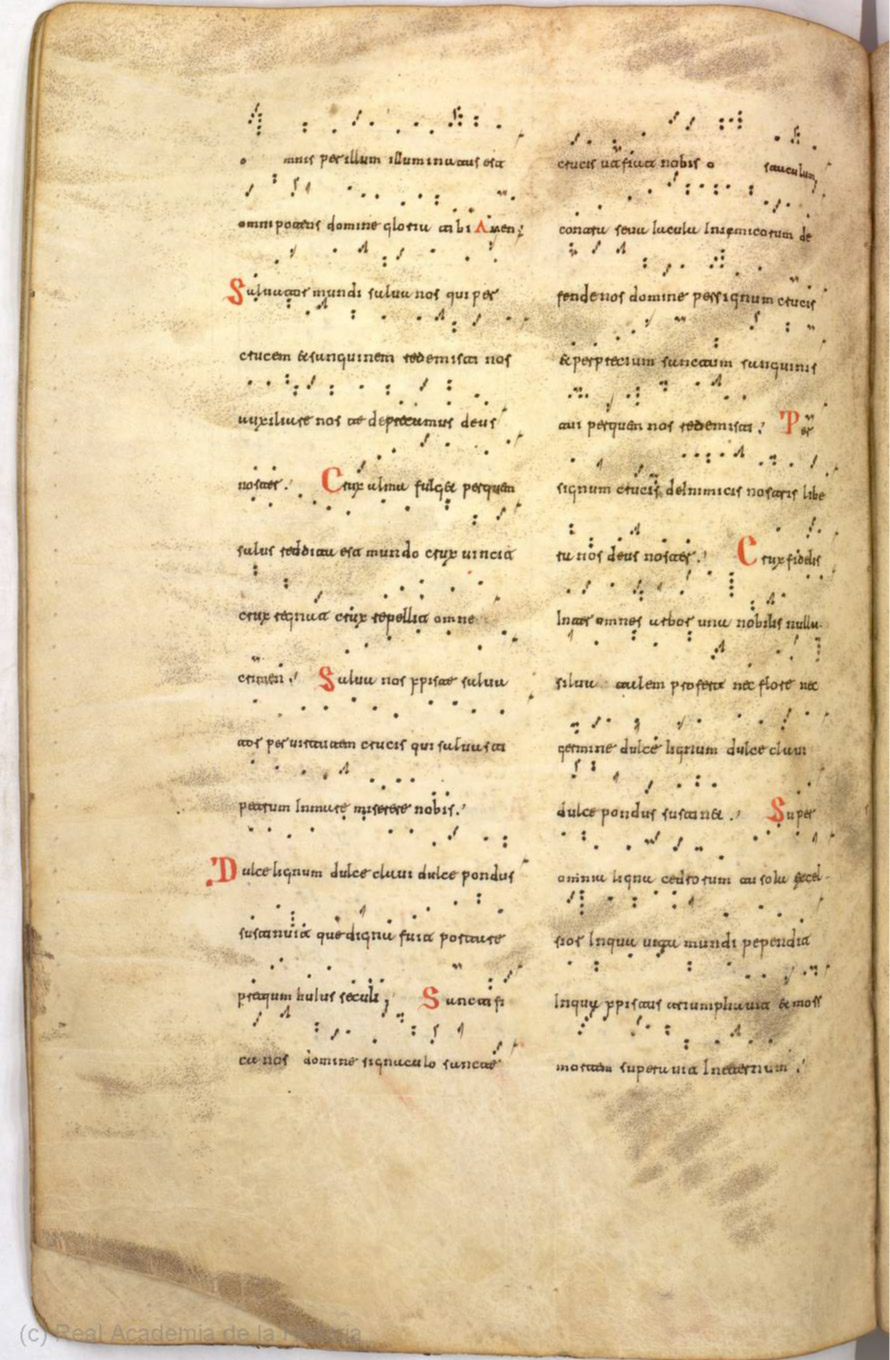 omnis per illum illuminatus est
omnipotens domine gloria tibi Amen
Saluator mundi salua nos qui per
crucem & sanguinem redemisti nos
auxiliare nos te deprecamur deus
noster. Crux alma fulg& per quem
salus reddita est mundo crux uincit
crux regnat crux repellit omne
crimen. Salua nos xpiste salua
tor per uirtutem crucis qui saluasti
petrum In mare miserere nobis.
Dulce lignum dulce claui dulce pondus
sustinuit que digna fuit portare
pretium huius seculi Sanctifi
ca nos domine signaculo sancte
crucis ut fiat nobis o saculum
conatu seua iacula Inimicorum de
fende nos domine per signum crucis
& per precium sanctum sanguinis
tui per quem nos redemisti. Per
signum crucis de Inimicis nostris libe
ra nos deus noster. Crux fidelis
Inter omnes arbor una nobilis nulla
silua talem profert nec flore nec
germine dulce lignum dulce claui
dulce pondus sustin& . Super
omnia ligna cedrorum tu sola excel
sior In qua uita mundi pependit
In qua xpistus triumphauit & mors
mortem superauit In eternum.
(c) Real Academia de la Historia